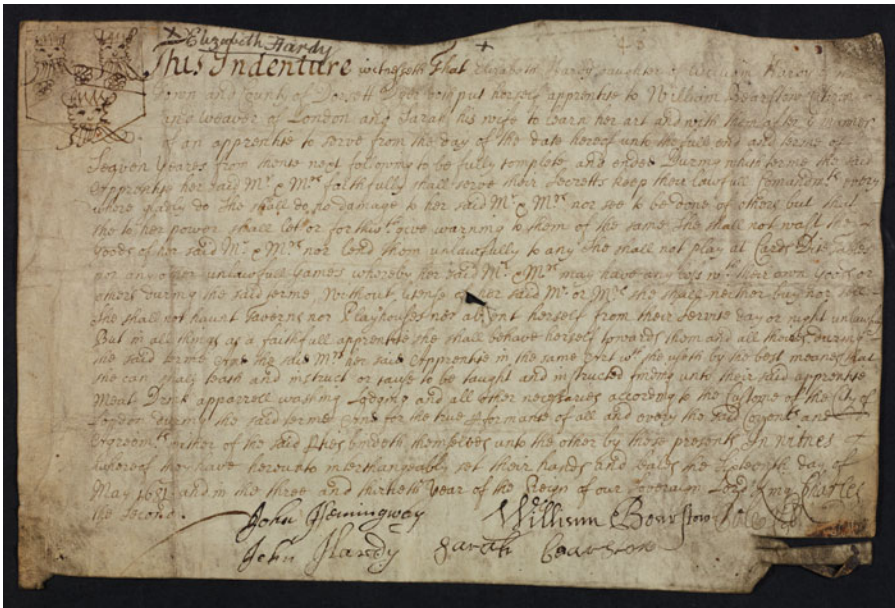 Elizabeth Hardy
This Indenture witnesseth That Elizabeth Hardy daughter of William Hardy
Town and County of Dorsett Doth put herself apprentice to William Bearstow Citizen
and Weaver of London and Sarah his wife to learn her art and with them after ye manner
of an apprentice to serve from the day of the date hereof unto the full end and terme of
Seaven Yeares from thence next following to be fully complete and ended During which terme the said
Apprentice her said Mr & Mrs faithfully shall serve their secretts keep their lawfull Comandmts every
where gladly do She shall do no damage to her said Mr & Mrs nor see to be done of others but that
she to her power shall lett or forthwth give warning to them of the same She shall not wast the
Goods of her said Mr & Mrs nor lend them unlawfully to any She shall not play at Cards Dice Tables
nor any other unlawfull Games whereby her said Mr & Mrs may have any loss wth their own Goods or
others during the said terme, Without license of her said Mr or Mrs she shall neither buy nor sell
She shall not haunt Taverns nor Playhouses nor absent herself from their service day or night unlawf
But in all things as a faithfull apprentice she shall behave herself towards them and all theires during
the said terme And the said Mrs her said Apprentice in the same Art wch she useth by the best meanes that
she can shall teach and instruct or cause to be taught and instructed finding unto their said apprentice
Meat Drink apparrell washing Lodging and all other necessaries according to the Custome of the City of
London during the said terme And for the true pformance of all and every the said Covents and
Agreemts either of the said pties bindeth themselves unto the other by these presents In witnes
whereof they have hereunto interchangeably set their hands and seales the day of
May 1681 and in the three and thirtieth Year of the Reign of our Soveraign Lord King Charles
the second.
John Hemingway William Bearstow
John Hardy Sarah bearstow